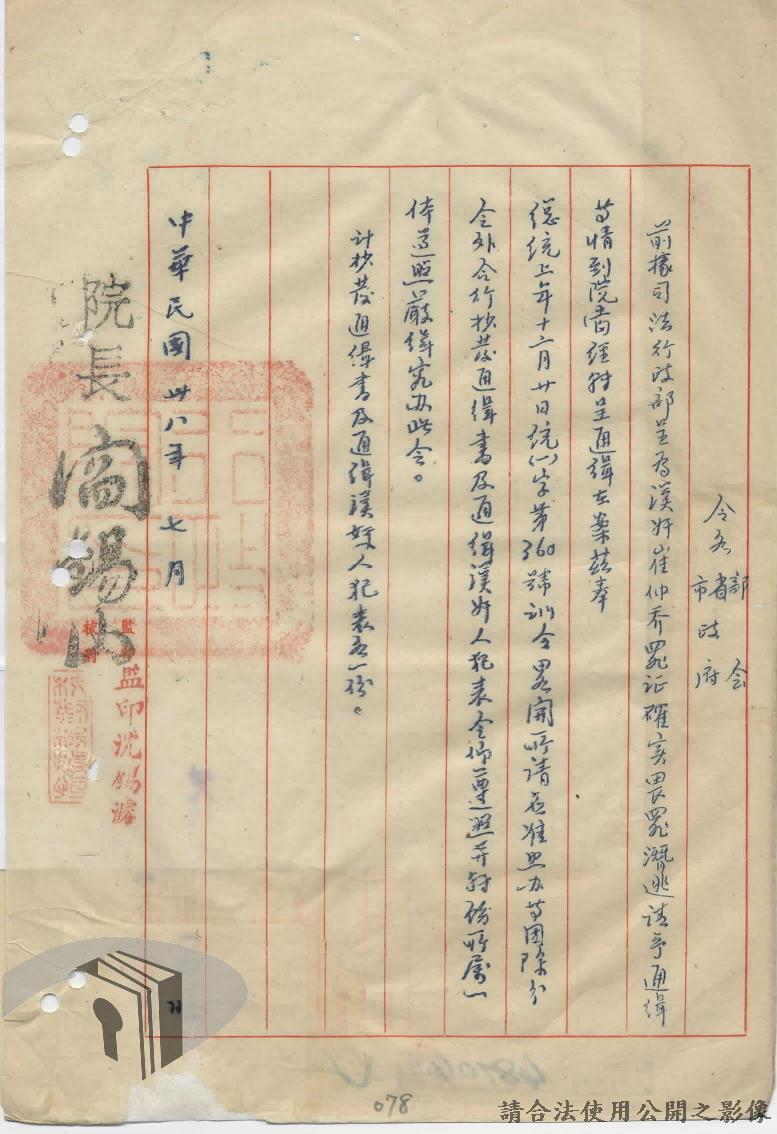 令各省市政府 部會
前據司法行政部呈為漢奸崔仲喬罪証確实畏罪潛逃請予通緝
等情到院當經轉呈通緝在案茲奉
總統上年十二月廿日統(一)字第360號训令畧開所請應准照办等因除分
令外合行抄發通緝書及通緝漢奸人犯表令仰遵照并轉飭所属一
体遵照嚴緝究办此令。
計抄發通緝書及通緝漢奸人犯表各一份。
中華民國卅八年七月
院長 閻錫山
監印沈錫濬
078
請合法使用公開之影像